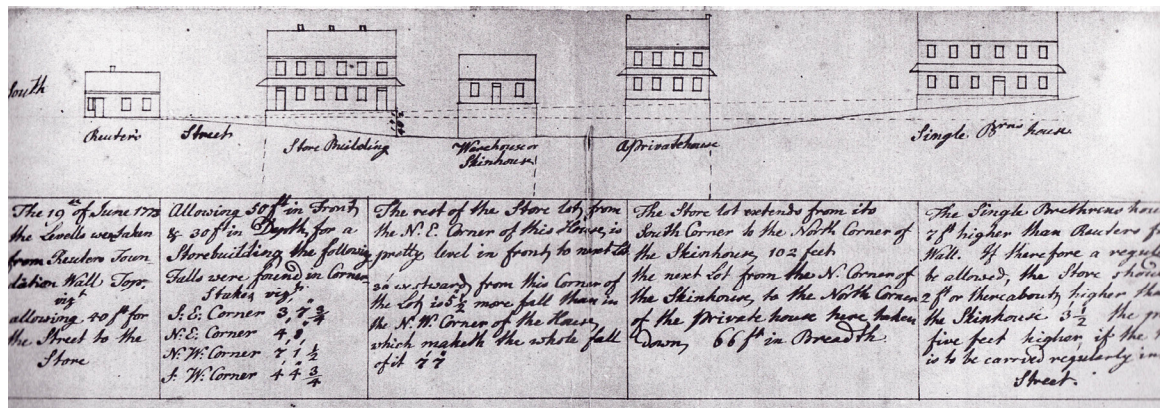 South
Reuter's
Street
Store Building
Warehouse or
Skinhouse
A Private house
Single Brns house
The 19th of June 1773
the Levells were taken
from Reuters Foun
dation Wall Top,
vizt
allowing 40 ft for
the Street to the
Store
Allowing 50 ft in Front,
& 30 ft in Depth, for a
Storebuilding the following
Falls were found in Corner
Stakes vizt,
S. E. Corner 3, 7 3/4
N. E. Corner 4,
N. W. Corner 7 1 1/2
S. W. Corner 4 4 3/4
The rest of the Store lot, from
the N. E. Corner of this House, is
pretty level in front, to next Lot
westward, from this Corner of
the Lot is 5 1/2 more fall than in
the N. W. Corner of the House,
which maketh the whole fall
of it 7 7
The Store lot extends from its
South Corner to the North Corner of
the Skinhouse, 102 feet
the next Lot from the N. Corner of
the Skinhouse, to the North Corner
of the Private house here taken
down, 66 ft in Breadth
The Single Brethrens hou
7 ft higher than Reuters
Wall. If therefore a regul
be allowed, the Store shou
2 ft or thereabouts higher tha
the Skinhouse 3 1/2 the pr
five feet higher, if the
is to be carried regularly in
Street.